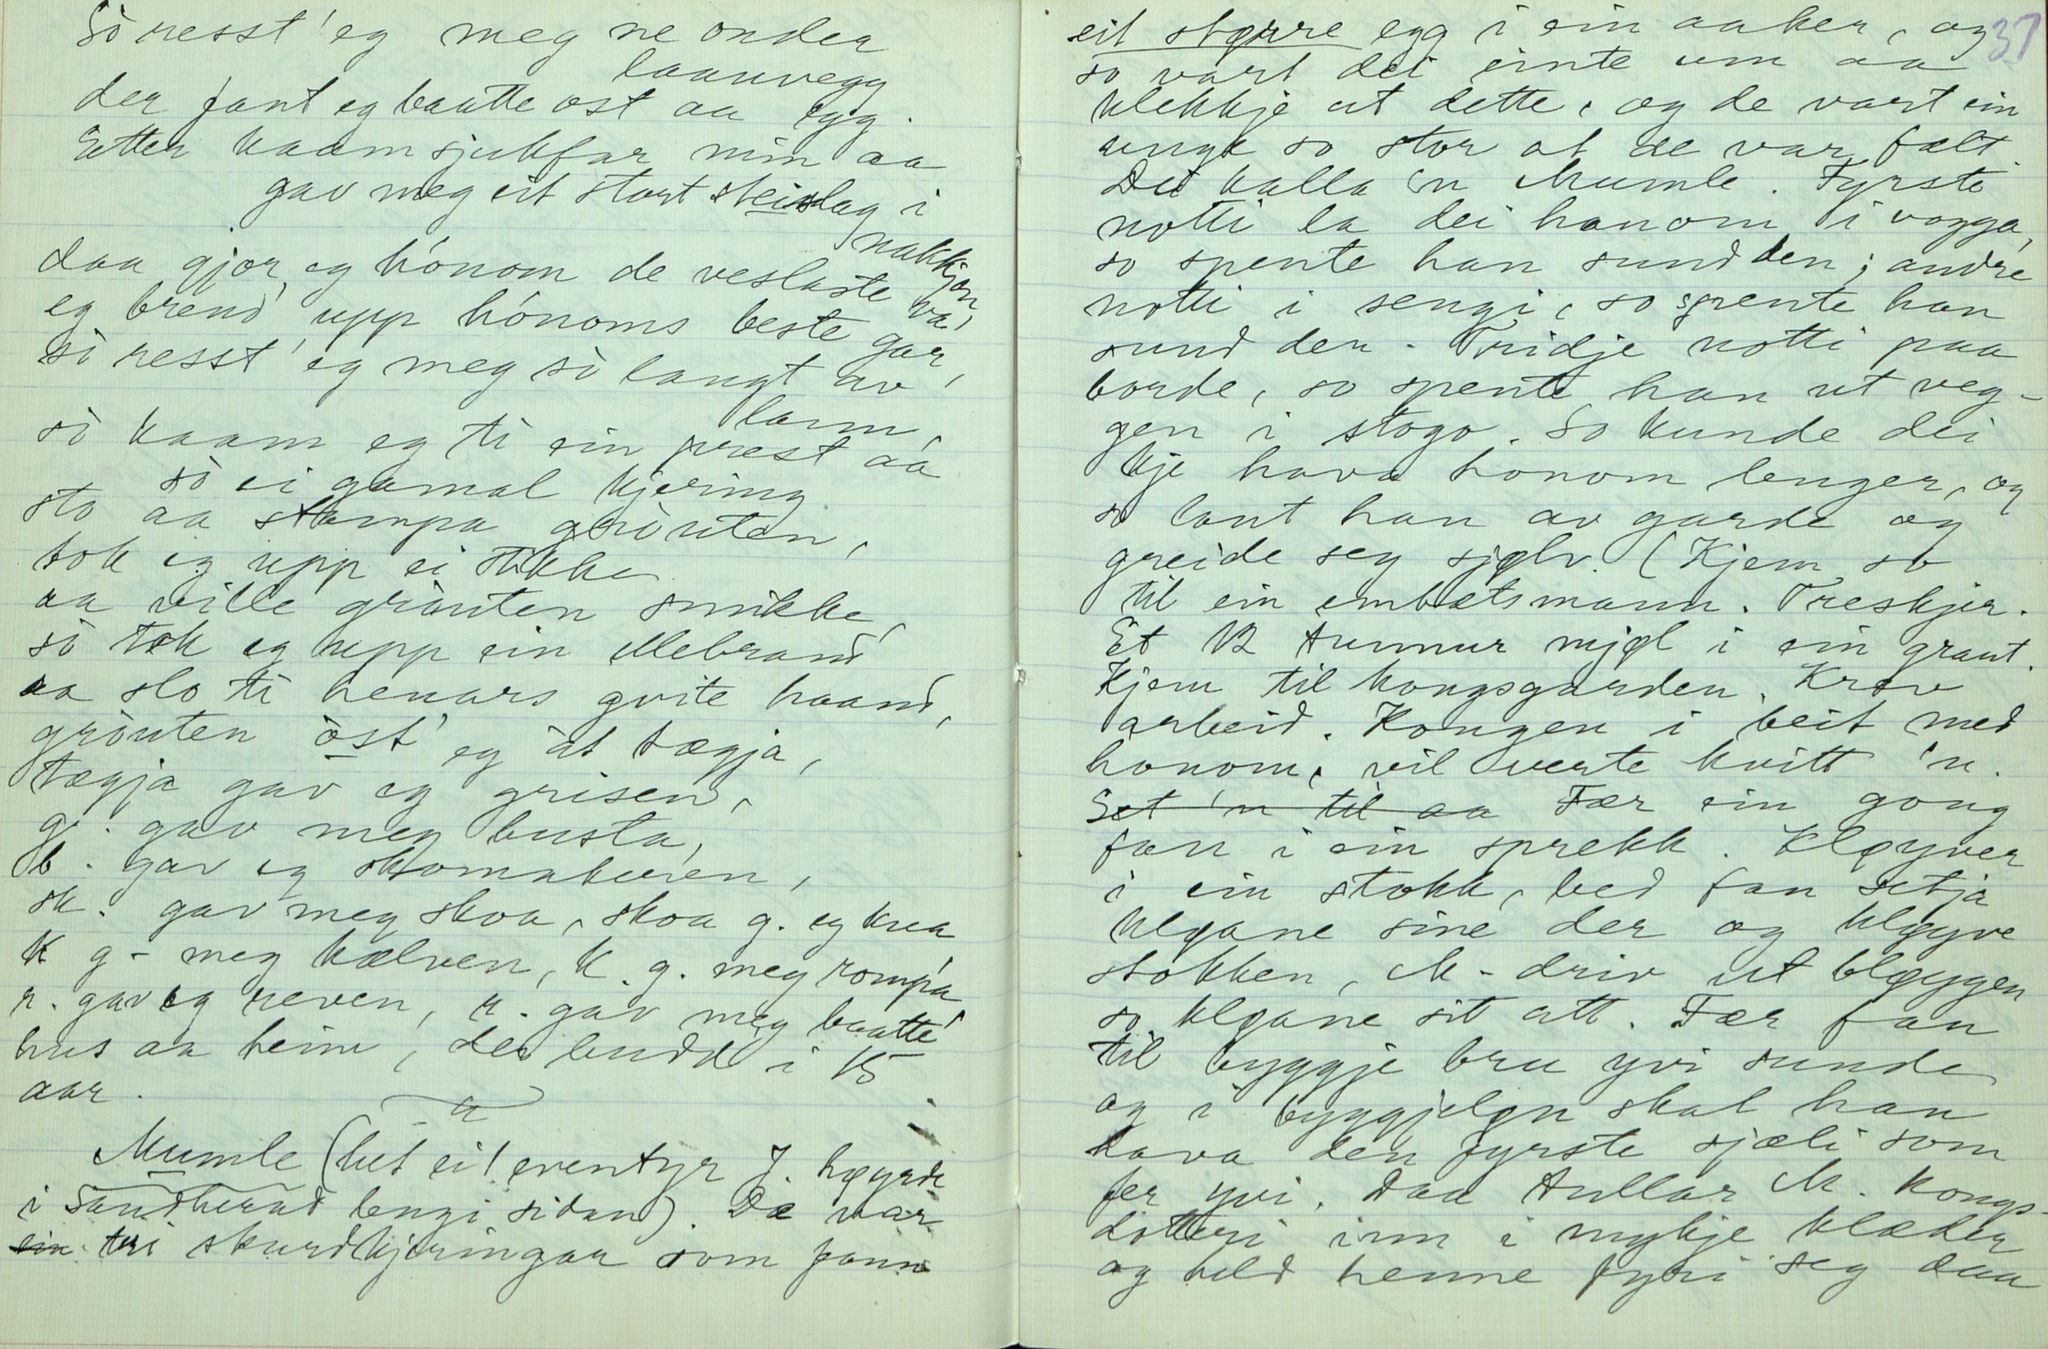 Sò resst' eg meg ne onder
laauvegg
der fant eg baatte ost aa egg.
Etter kaam sjukfar min aa
gav meg eit stort steinslag i
nakkjen,
daa gjor eg hònom de veslaste va,
eg brend' upp hònoms beste gar,
sò resst' eg meg sò langt av
lann,
sò kaam eg ti ein prest aa
sò ei gamal kjering
sto aa stampa gròuten,
tok eg upp ei stikke
aa ville gròuten smikke,
sò tok eg upp ein ellebrand
aa slo ti henars gvite haand,
gròuten òst' eg åt tægja,
tægja gav eg grisen,
g. gav meg busta,
b. gav eg skomakuren,
sk. gav meg skoa, skoa g. eg kua
k g- meg kælven, k. g. meg rompa
r. gav eg reven, r. gav meg baatte'
hus aa heim, der budd' i 15
aar.
Mumle (het eit eventyr J. høyrde
i Sandherad lengi sidan). De var
ein tri skurdkjeringar som fann
37
eit større egg i ein aaker, og
so vart dei einte um aa
klekkje ut dette, og de vart ein
unge so stor at de var fælt.
Dei kalla 'n Mumle. Fyrste
notti la dei honom i vogga,
so spente han sund den; andre
notti i sengi, so spente han
sund den. Tridje notti paa
borde, so spente han ut veg-
gen i stogo. So kunde dei
kje hava honom lenger, og
so lout han av garde og
greide seg sjølv. (Kjem so
til ein embætsmann. Treskjer.
Et 12 tunnur mjøl i ein graut.
Kjem til kongsgarden. Krev
arbeid. Kongen i beit med
honom, vil verte kvitt 'n.
Set 'n til aa Fær ein gong
fan i ein sprekk. Kløyver
i ein stokk, bed fan setja
kløane sine der og kløyve
stokken, M- driv ut bløygen
so kløane sit att. Fær fan
til byggje bru yvi sunde
og i byggjeløn skal han
hava den fyrste sjæli som
fer yvi. Daa tullar M. kongs-
dotteri inn i mykje klæder
og held henne fyri seg daa